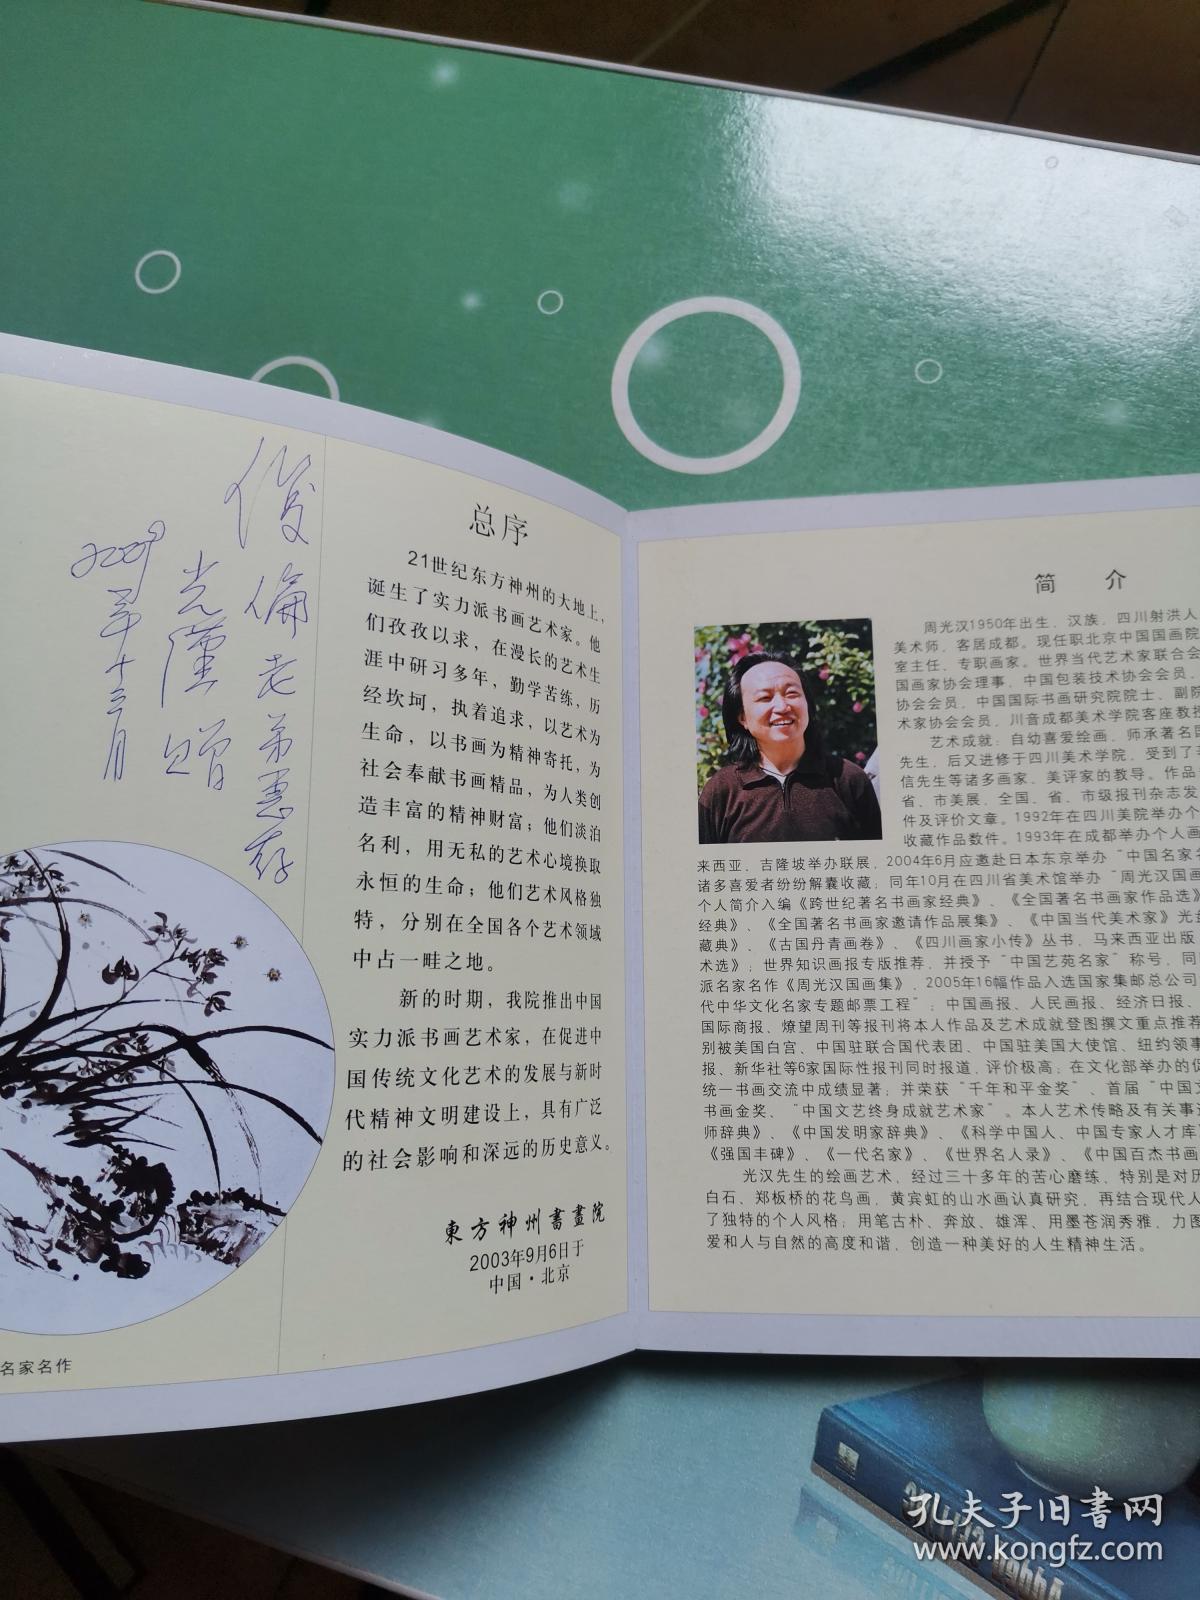 俊倫老弟惠存
光漢贈
2009年十二月
名家名作
总序
21世纪东方神州的大地上,
诞生了实力派书画艺术家。他
们孜孜以求，在漫长的艺术生
涯中研习多年，勤学苦练，历
经坎坷，执着追求，以艺术为
生命，以书画为精神寄托，为
社会奉献书画精品，为人类创
造丰富的精神财富；他们淡泊
名利，用无私的艺术心境换取
永恒的生命；他们艺术风格独
特，分别在全国各个艺术领域
中占一畦之地。
新的时期，我院推出中国
实力派书画艺术家，在促进中
国传统文化艺术的发展与新时
代精神文明建设上，具有广泛
的社会影响和深远的历史意义。
東方神州書畫院
2003年9月6日于
中国·北京
简 介
周光汉1950年出生，汉族，四川射洪人
美术师，客居成都。现任职北京中国国画院
室主任、专职画家。世界当代艺术家联合会
国画家协会理事，中国包装技术协会会员，
协会会员，中国国际书画研究院院士，副院
术家协会会员，川音成都美术学院客座教授
艺术成就：自幼喜爱绘画，师承著名国
先生，后又进修于四川美术学院，受到了
信先生等诸多画家、美评家的教导。作品
省、市美展，全国、省、市级报刊杂志发
件及评价文章。1992年在四川美院举办个
收藏作品数件。1993年在成都举办个人画
来西亚，吉隆坡举办联展，2004年6月应邀赴日本东京举办“中国名家名
诸多喜爱者纷纷解囊收藏；同年10月在四川省美术馆举办“周光汉国画
个人简介入编《跨世纪著名书画家经典》、《全国著名书画家作品选》
经典》、《全国著名书画家邀请作品展集》、《中国当代美术家》光盘
藏典》、《古国丹青画卷》、《四川画家小传》丛书，马来西亚出版
术选》；世界知识画报专版推荐，并授予“中国艺苑名家”称号，同
派名家名作《周光汉国画集》，2005年16幅作品入选国家集邮总公司
代中华文化名家专题邮票工程”；中国画报、人民画报、经济日报、
国际商报、燎望周刊等报刊将本人作品及艺术成就登图撰文重点推荐
别被美国白宫、中国驻联合国代表团、中国驻美国大使馆、纽约领事
报、新华社等6家国际性报刊同时报道，评价极高；在文化部举办的促
统一书画交流中成绩显著；并荣获“千年和平金奖”、首届“中国文
书画金奖、“中国文艺终身成就艺术家”。本人艺术传略及有关事
师辞典》、《中国发明家辞典》、《科学中国人、中国专家人才库》
《强国丰碑》、《一代名家》、《世界名人录》、《中国百杰书画
光汉先生的绘画艺术，经过三十多年的苦心磨练，特别是对历
白石、郑板桥的花鸟画，黄宾虹的山水画认真研究，再结合现代人
了独特的个人风格；用笔古朴、奔放、雄浑、用墨苍润秀雅，力图
爱和人与自然的高度和谐，创造一种美好的人生精神生活。
孔夫子旧书网
www.kongfz.com